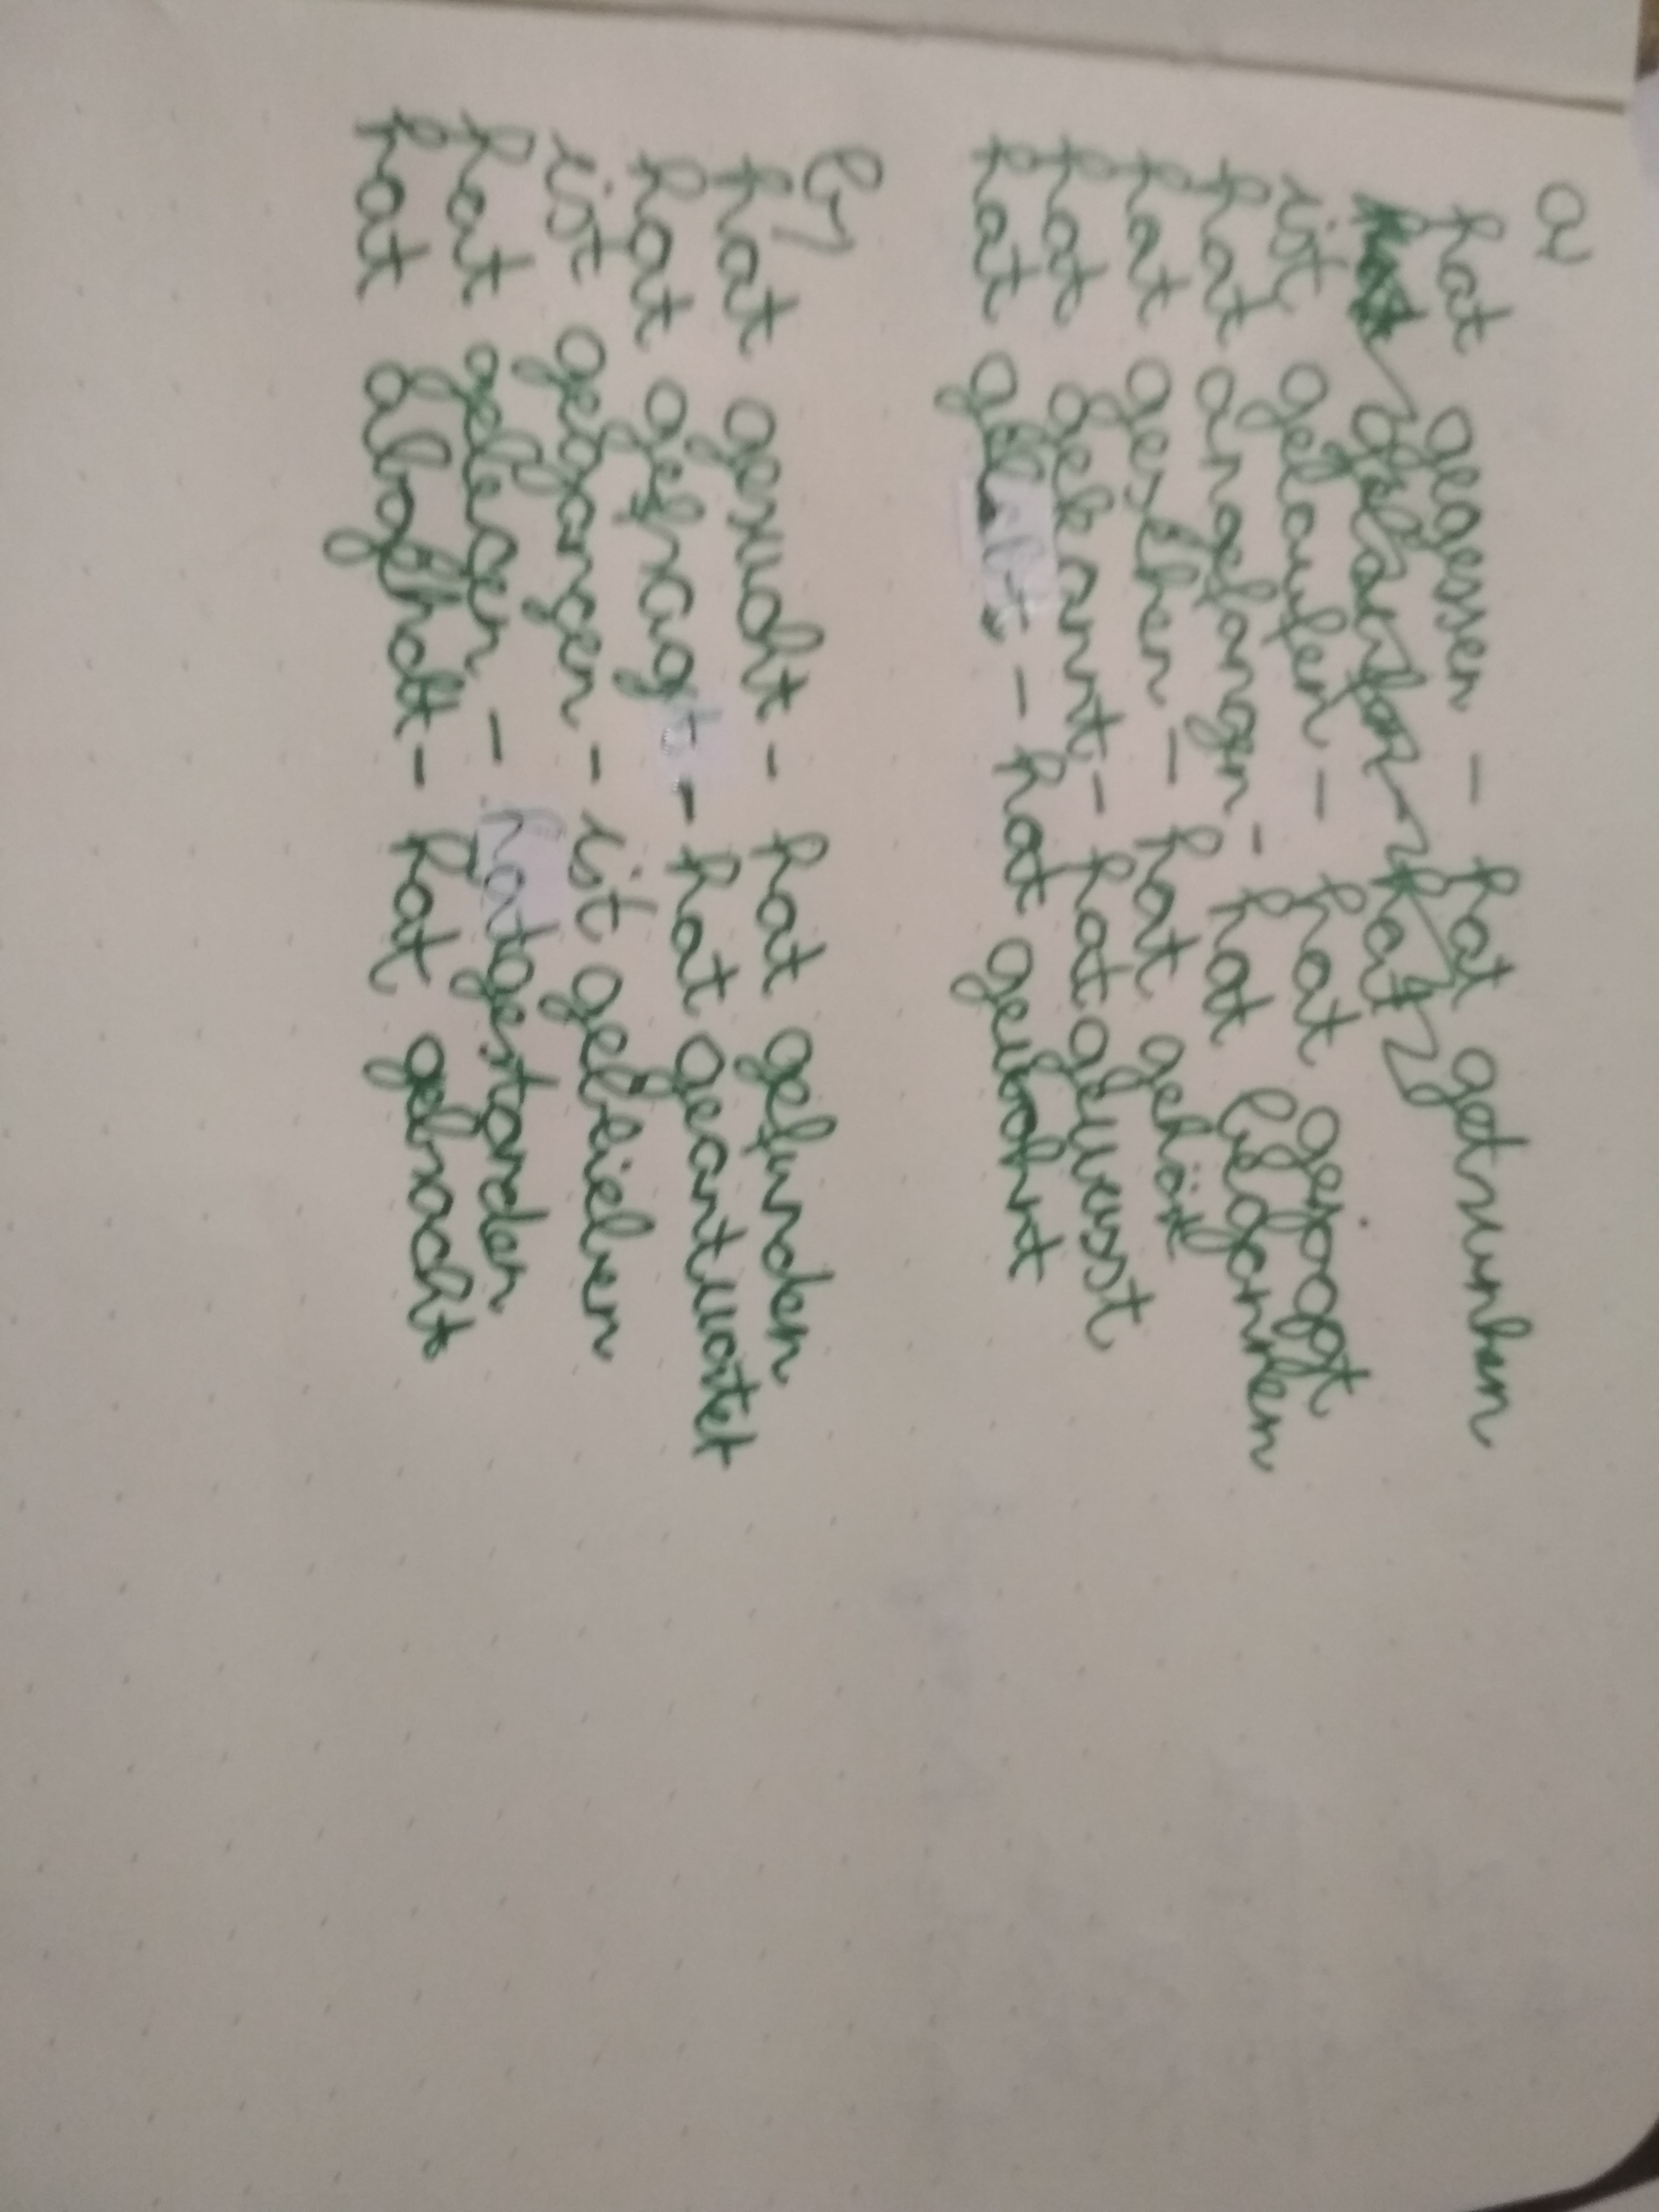 a)
hat gegessen - hat getrunken
hat
ist gelaufen - hat gejoggt
hat angefangen - hat begonnen
hat gesehen - hat gehört
hat gekannt - hat gewusst
hat gelebt - hat gewohnt
b)
hat gesucht - hat gefunden
hat gefragt - hat geantwortet
ist gegangen - ist geblieben
hat gelegen - hat gestanden
hat abgeholt - hat gebracht